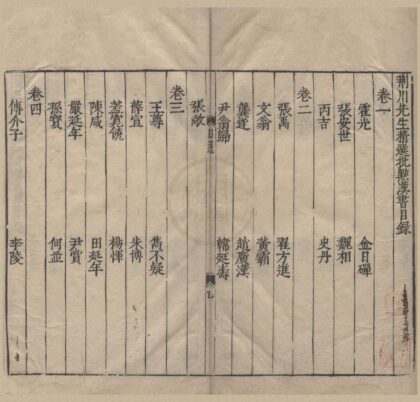 荆川先生精選批點漢書目錄
卷一
霍光 金日磾
張安世 魏相
丙吉 史丹
卷二
張禹 翟方進
文翁 黃霸
龔遂 趙廣漢
尹翁歸 韓延壽
張敞
卷三
王尊 雋不疑
薛宣 朱博
蓋寬饒 楊惲
陳咸 田延年
嚴延年 尹賞
孫寶 何並
卷四
傅介子 李陵